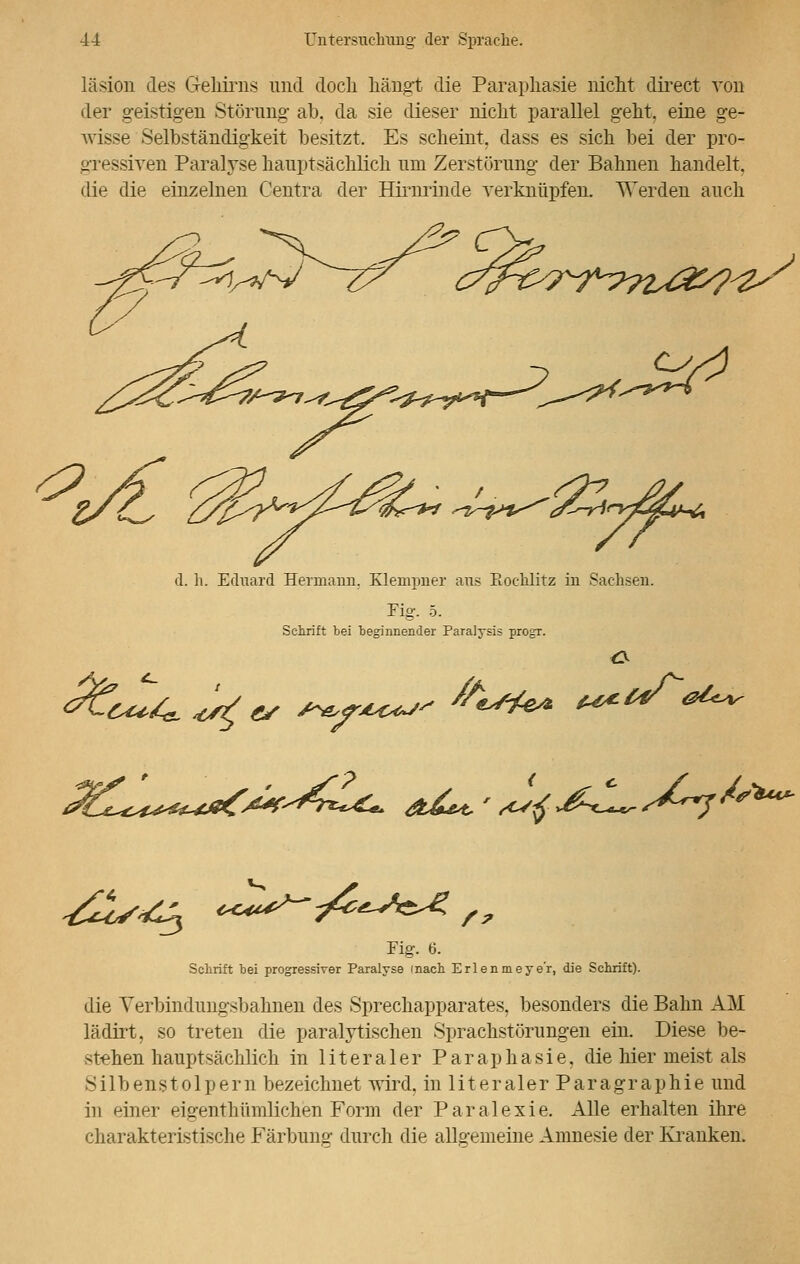 44 Untersuchung der Sprache.
läsion des Gehirns und doch hängt die Paraphasie nicht direct von
der geistigen Störung ab, da sie dieser nicht parallel geht, eine ge-
wisse Selbständigkeit besitzt. Es scheint, dass es sich bei der pro-
gressiven Paralyse hauptsächlich um Zerstörung der Bahnen handelt,
die die einzelnen Centra der Hirnrinde verknüpfen. Werden auch
d. h. Eduard Hermann, Klempner aus Rochlitz in Sachsen.
Fig. 5.
Schrift bei beginnender Paralysis progr.
Fig. 6.
Schrift bei progressiver Paralyse (nach Erlenmeyer, die Schrift).
die Verbindungsbahnen des Sprechapparates, besonders die Bahn AM
lädirt, so treten die paralytischen Sprachstörungen ein. Diese be-
stehen hauptsächlich in literaler Paraphasie, die hier meist als
Silbenstolpern bezeichnet wird, in literaler Paragraphie und
in einer eigenthümlichen Form der Paralexie. Alle erhalten ihre
charakteristische Färbung durch die allgemeine Amnesie der Kranken.